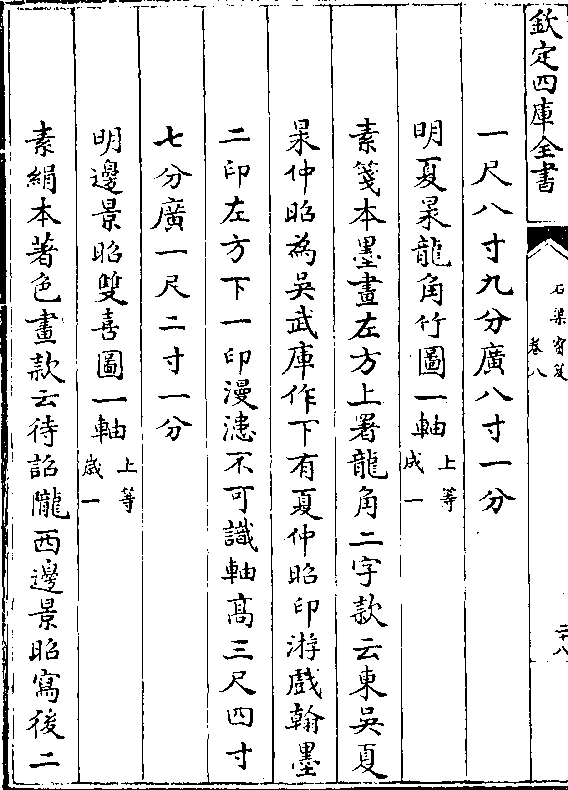 欽定四庫全書
石渠寳笈
卷八
一尺八寸九分廣八寸一分
明夏㫤龍角竹圖一軸 上等成一
素箋本墨畫左方上署龍角二字款云東吳夏
㫤仲昭為吳武庫作下有夏仲昭印游戲翰墨
二印左方下一印漫漶不可識軸高三尺四寸
七分廣一尺二寸一分
明邊景昭雙喜圖一軸 上等歲一
素絹本著色畫款云待詔隴西邊景昭寫後二